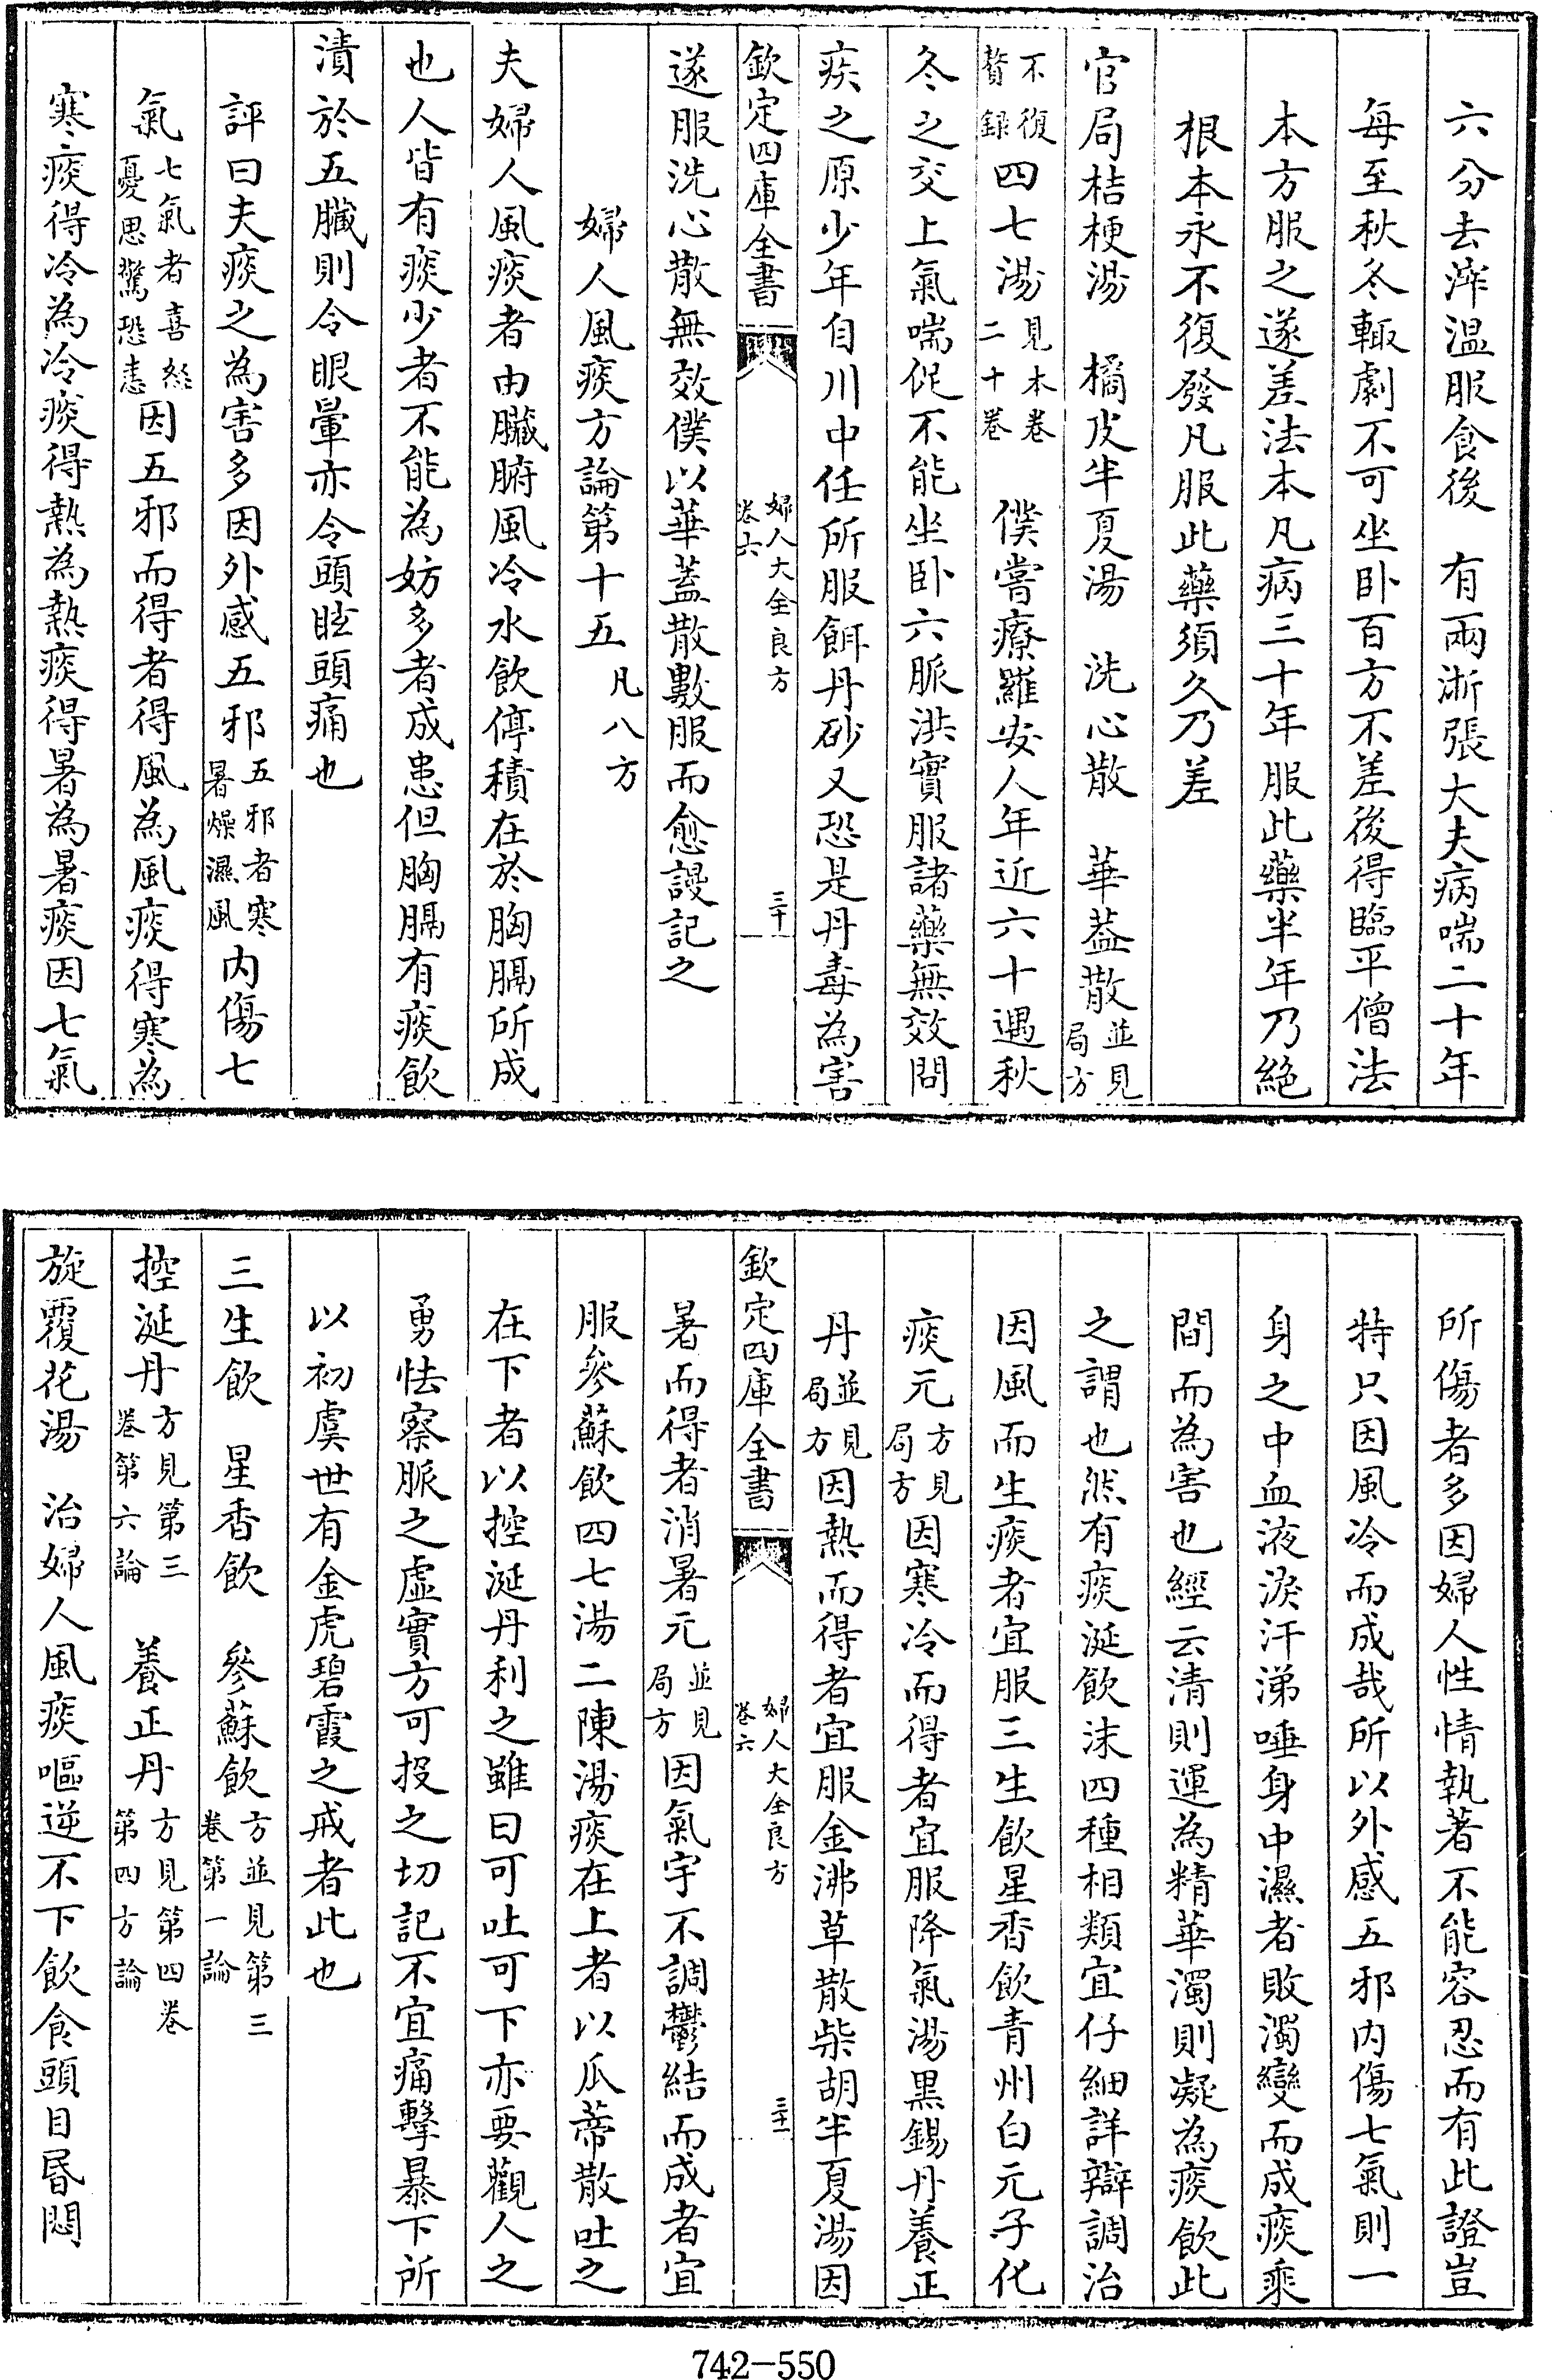 六分去滓温服食後　有兩浙張大夫病喘二十年
每至秋冬輙劇不可坐卧百方不差後得臨平僧法
本方服之遂差法本凡病三十年服此藥半年乃絶
根本永不復發凡服此藥須久乃差
官局桔梗湯　橘皮半夏湯　洗心散　華葢散並見局方
不復贅録四七湯見本卷二十卷　僕嘗療羅安人年近六十遇秋
冬之交上氣喘促不能坐卧六脈洪實服諸藥無效問
疾之原少年自川中任所服餌丹砂又恐是丹毒為害
欽定四庫全書　婦人大全良方卷六　三十一
遂服洗心散無效僕以華蓋散數服而愈謾記之
婦人風痰方論第十五凡八方
夫婦人風痰者由臟腑風冷水飲停積在於胸膈所成
也人皆有痰少者不能為妨多者成患但胸膈有痰飲
漬於五臟則令眼暈亦令頭眩頭痛也
評曰夫痰之為害多因外感五邪五邪者寒暑燥濕風内傷七
氣七氣者喜怒憂思驚恐恚因五邪而得者得風為風痰得寒為
寒痰得冷為冷痰得熱為熱痰得暑為暑痰因七氣
所傷者多因婦人性情執著不能容忍而有此證豈
特只因風冷而成哉所以外感五邪内傷七氣則一
身之中血液淚汗涕唾身中濕者敗濁變而成痰乘
間而為害也經云清則運為精華濁則凝為痰飲此
之謂也然有痰涎飲沫四種相類宜仔細詳辯調治
因風而生痰者宜服三生飲星香飲青州白元子化
痰元方見局方因寒冷而得者宜服降氣湯黒錫丹養正
丹並見局方因熱而得者宜服金沸草散柴胡半夏湯因
欽定四庫全書　婦人大全良方卷六　三十二
暑而得者消暑元並見局方因氣宇不調鬱結而成者宜
服參蘇飲四七湯二陳湯痰在上者以瓜蒂散吐之
在下者以控涎丹利之雖曰可吐可下亦要觀人之
勇怯察脈之虛實方可投之切記不宜痛擊暴下所
以初虞世有金虎碧霞之戒者此也
三生飲　星香飲　參蘇飲方並見第三卷第一論
控涎丹方見第三卷第六論　養正丹方見第四卷第四方論
旋覆花湯　治婦人風痰嘔逆不下飲食頭目昬悶
742-550